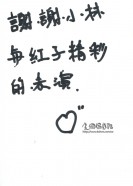 謝謝小林
每紅子精彩
的表演.